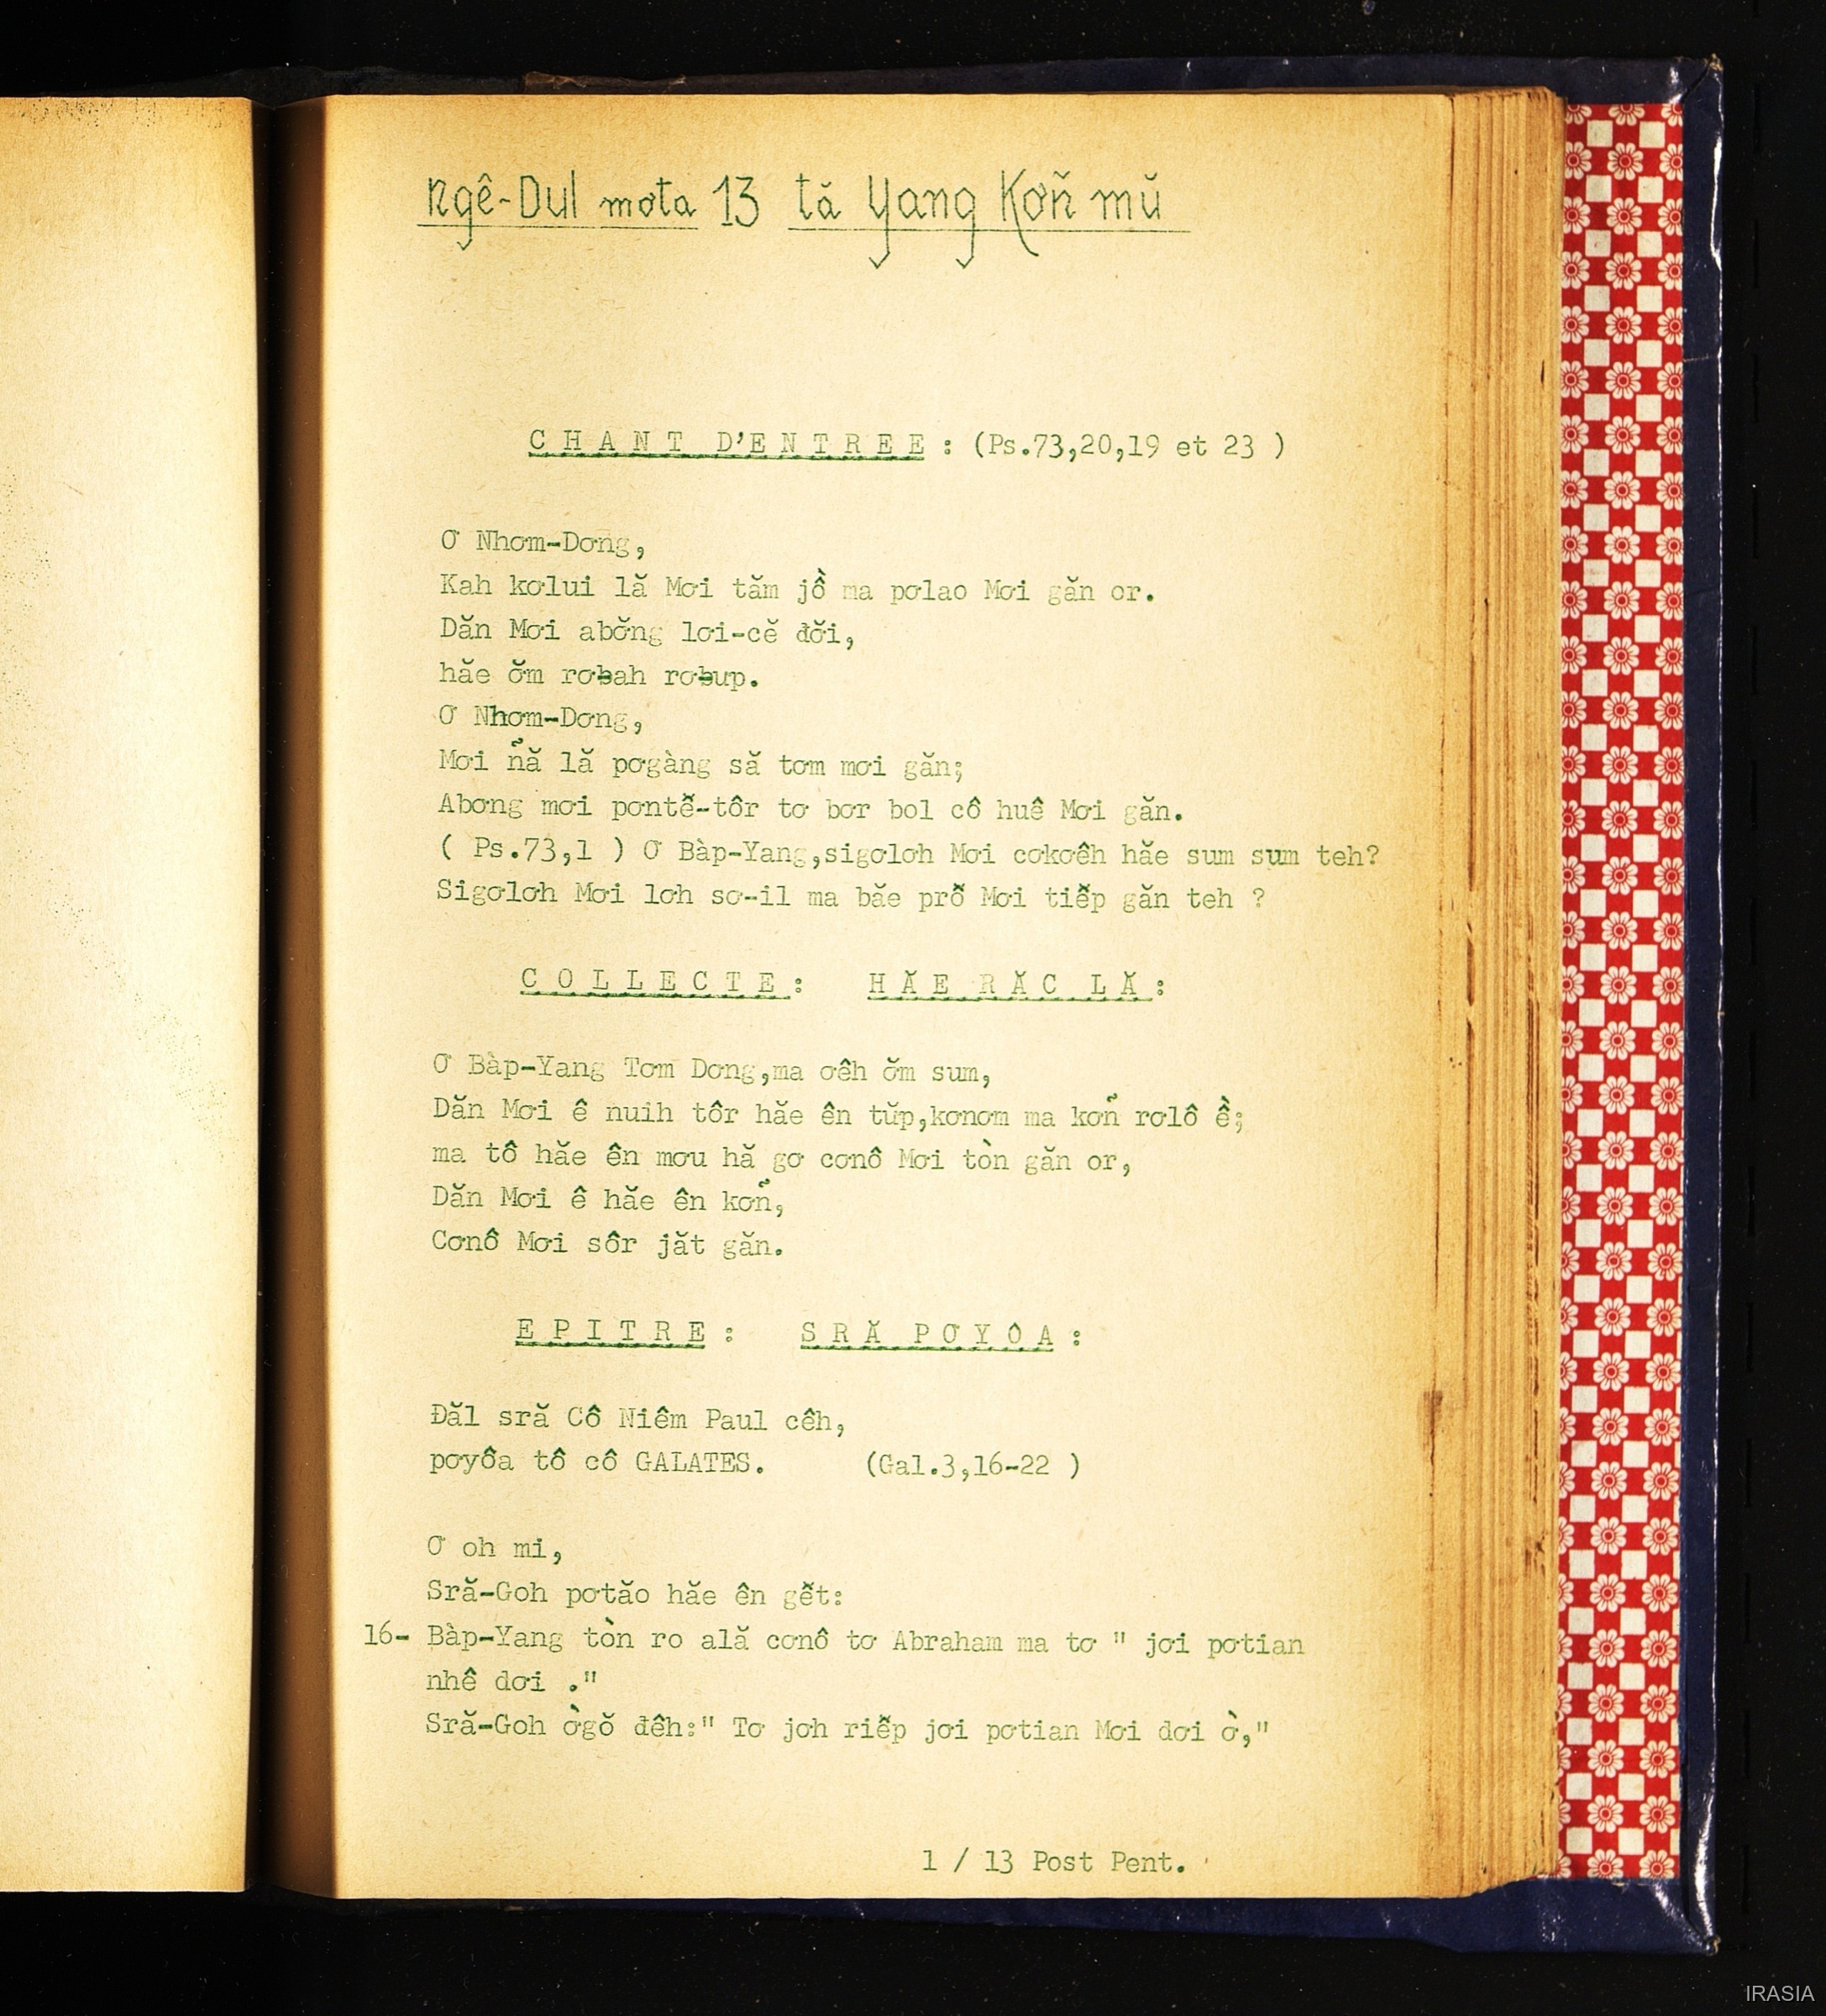 Ngê-Dul mơta 13 tă Yang Kơñ mŭ
CHANT D'ENTREE : (Ps.73,20,19 et 23 )
Ơ Nhơm-Dơng,
Kah kơlui lă Mơi tăm jồ ma pơlao Mơi găn or.
Dăn Mơi abơ̆ng lơi-cĕ đơ̆i,
hăe ơ̆m rơƀah rơƀup.
Ơ Nhơm-Dơng,
Mơi ñă lă pơgàng să tơm mơi găn;
Abơng mơi pơntê̆-tôr tơ bơr bol cô huê Mơi găn.
( Ps.73,1 ) Ơ Bàp-Yang,sigơlơh Mơi cơkơêh hăe sum sum teh?
Sigơlơh Mơi lơh sơ-il ma băe prô̆ Mơi tiê̆p găn teh ?
COLLECTE: HĂE RĂC LĂ:
Ơ Bàp-Yang Tơm Dơng,ma ơêh ơ̆m sum,
Dăn Mơi ê nuih tôr hăe ên tŭp,kơnơm ma kơn̆ rơlô ề;
ma tô hăe ên mơu hă gơ cơnô Mơi tòn găn or,
Dăn Mơi ê hăe ên kơn̆,
Cơnô Mơi sôr jăt găn.
EPITRE : SRĂ PƠYÔA :
Đăl sră Cô Niêm Paul cêh,
pơyôa tô cô GALATES. (Gal.3,16-22 )
Ơ oh mi,
Sră-Goh pơtăo hăe ên gê̆t:
16- Bàp-Yang tòn ro ală cơnô tơ Abraham ma tơ " jơi pơtian
nhê dơi ."
Sră-Goh ờgŏ đêh:" Tơ jơh riê̆p jơi pơtian Mơi dơi ờ,"
1 / 13 Post Pent.
IRASIA